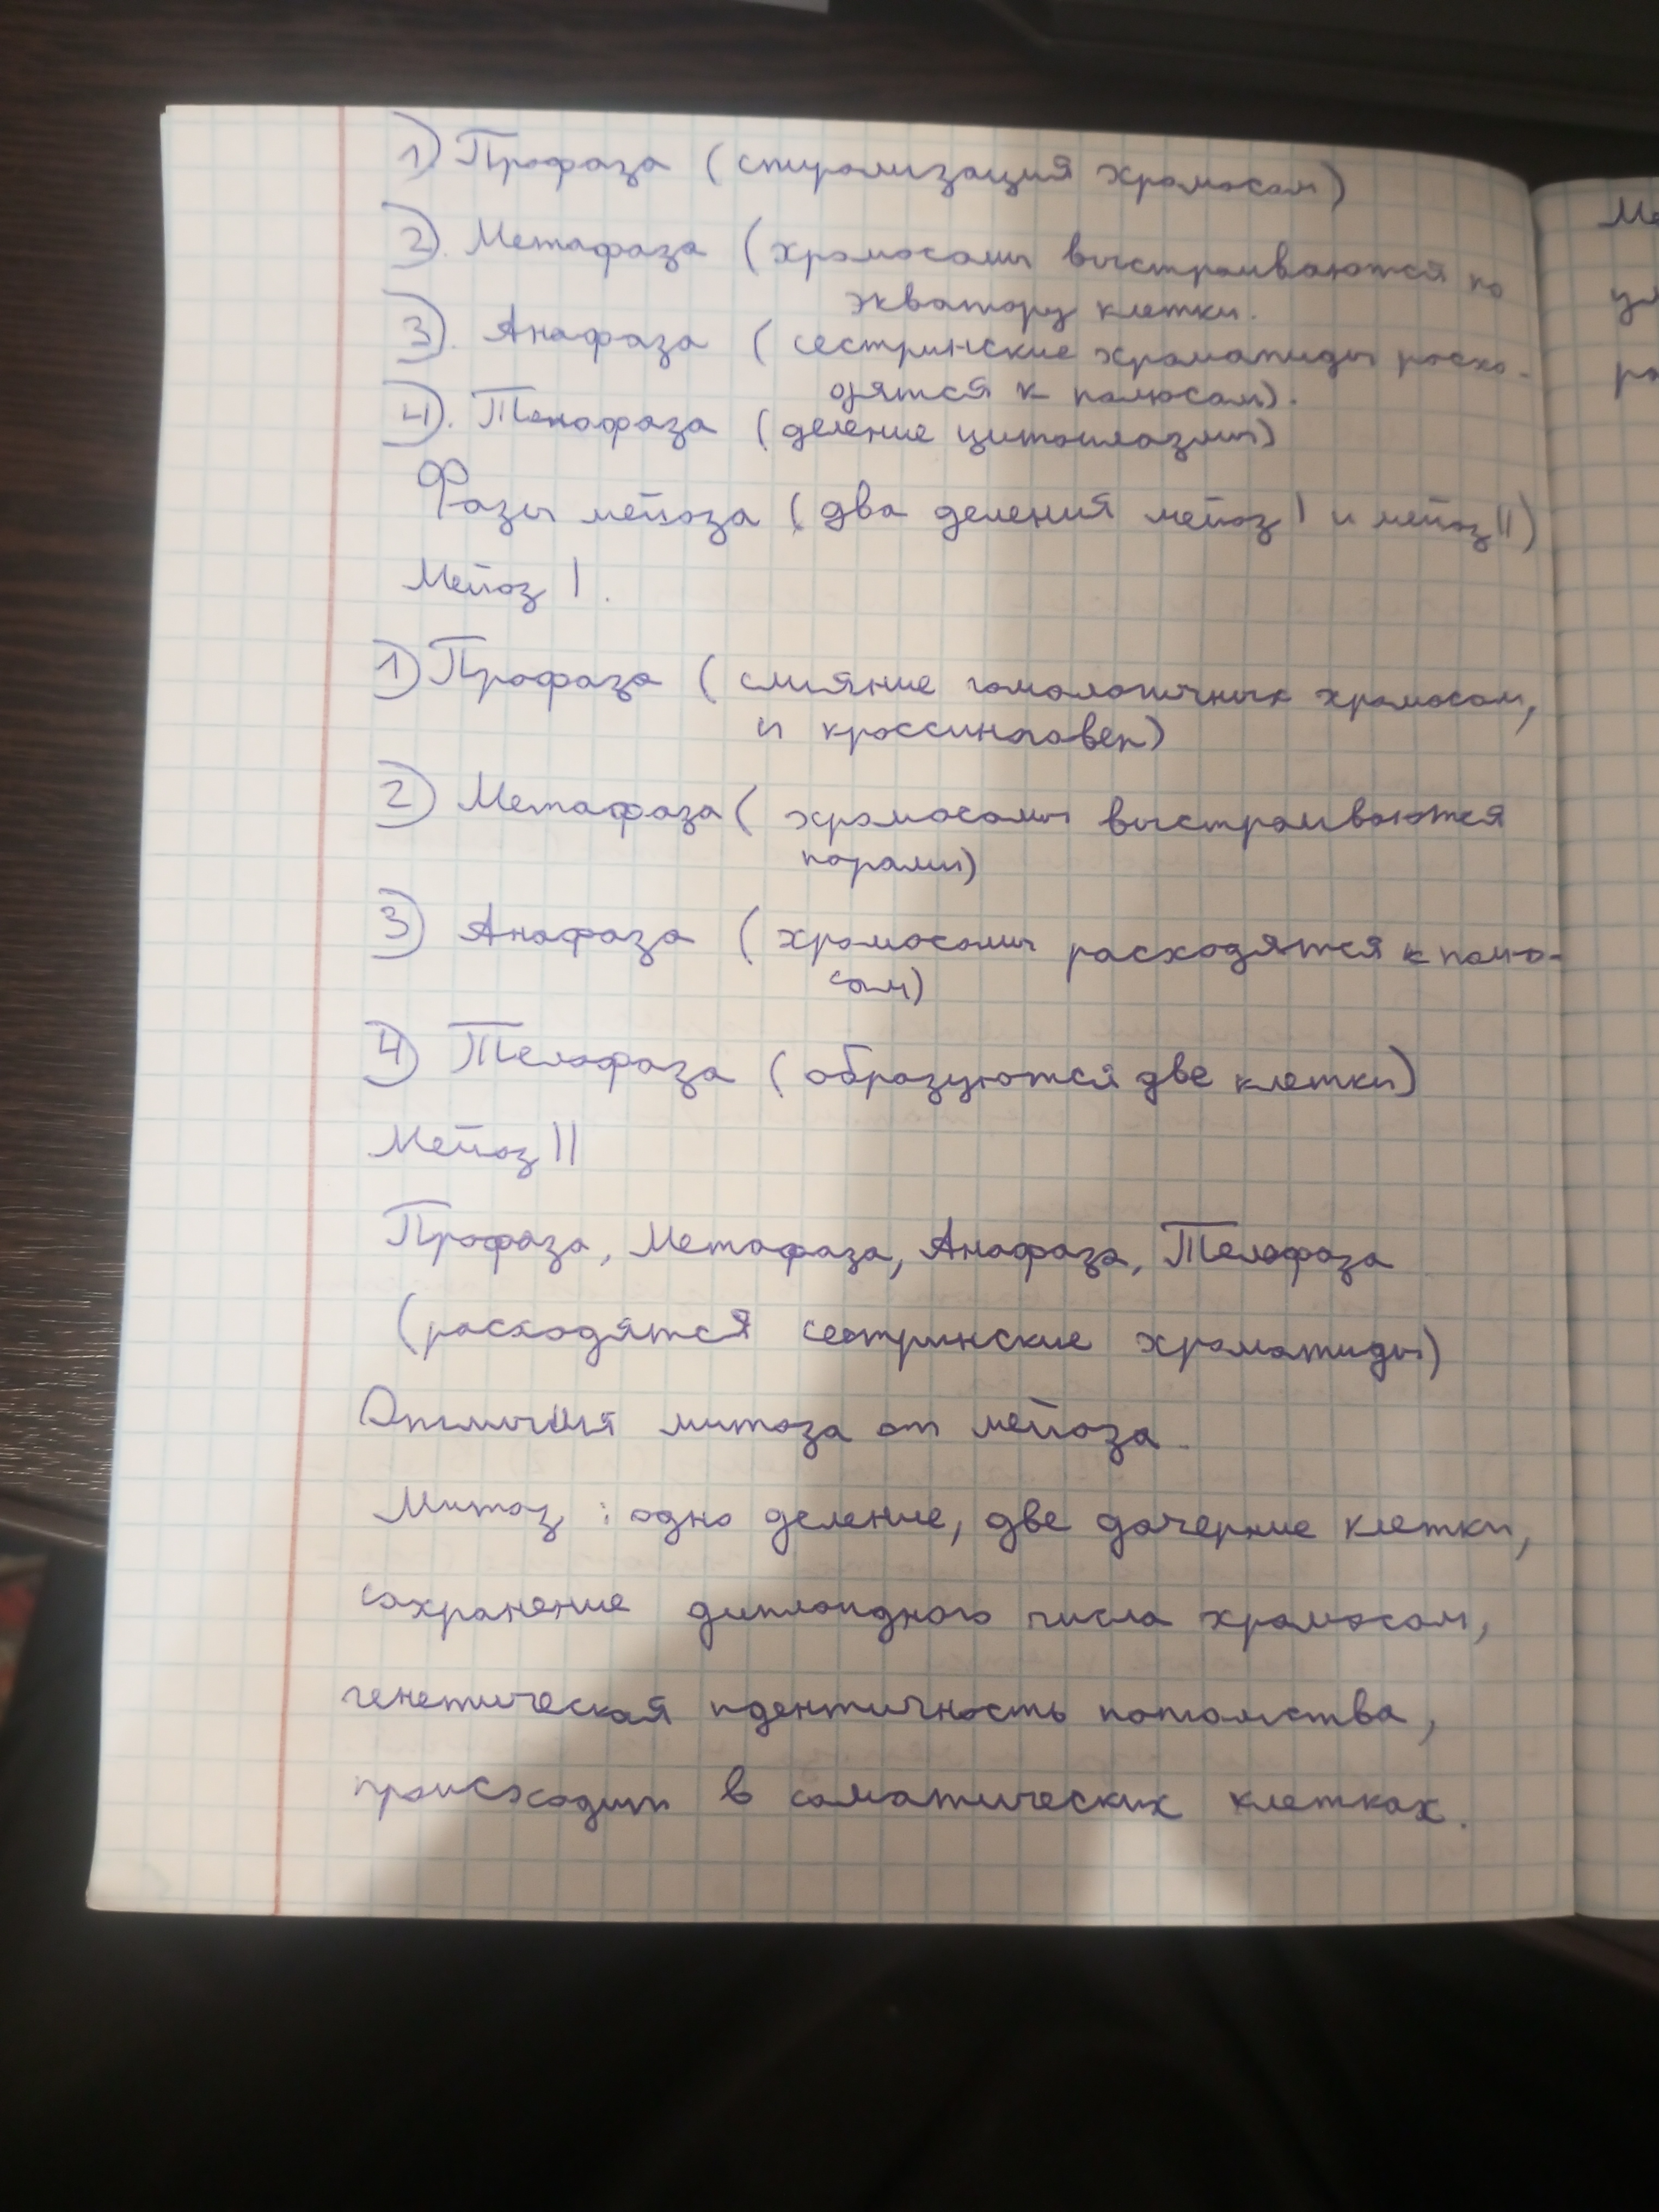 1) Профаза (спирализация хромосом)
2). Метафаза (хромосомы выстраиваются по
экватору клетки.
3). Анафаза (сестринские хроматиды расхо-
дятся к полюсам).
4). Телофаза (деление цитоплазмы)
Фазы мейоза (два деления мейоз I и мейоз II)
Мейоз I.
1) Профаза (слияние гомологичных хромосом,
и кроссинговер)
2) Метафаза (хромосомы выстраиваются
парами)
3) Анафаза (хромосомы расходятся к полю-
сам)
4) Телофаза (образуются две клетки)
Мейоз II
Профаза, Метафаза, Анафаза, Телофаза
(расходятся сестринские хроматиды)
Отличия митоза от мейоза.
Митоз: одно деление, две дочерние клетки,
сохранение диплоидного числа хромосом,
генетическая идентичность потомства,
происходит в соматических клетках.